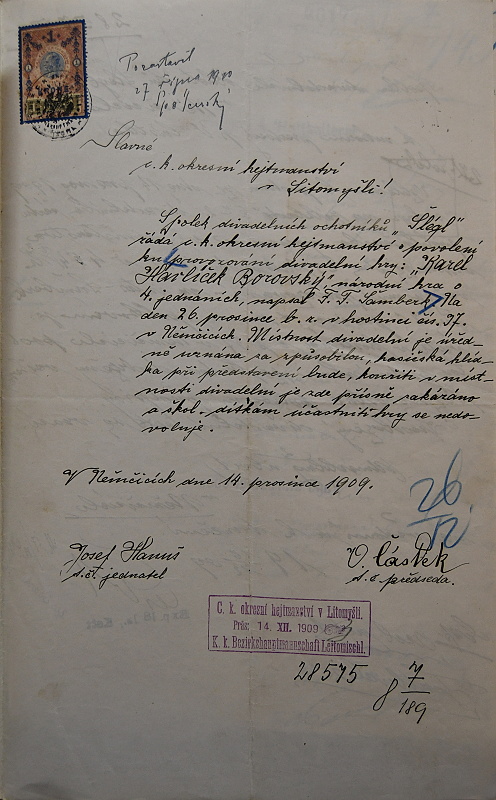 1
27 října 1910
Slavné
c. k. okresní hejtmanství
v Litomyšli!
Spolek divadelních ochotníků „Šlégl"
žádá c. k. okresní hejtmanství o povolení
ku provozování divadelní hry: „Karel
Havlíček Borovský" národní hra o
4. jednáních, napsal F. F. Šamberk. Na
den 26. prosince b. r. v hostinci čís. 37.
v Němčicích. Místnost divadelní je úřed-
ně uznána za způsobilou, hasičská hlíd-
ka při představení bude, kouřiti v míst-
nosti divadelní je zde přísně zakázáno
a škol. dítkám účastniti hry se nedo-
voluje.
V Němčicích dne 14. prosince 1909.
26/12
Josef Hanuš
t. č. jednatel
V. Částek
t. č. předseda.
C. k. okresní hejtmanství v Litomyšli.
Präs: 14. XII. 1909
K. k. Bezirkshauptmannschaft Leitomischl.
28575
8 7/189